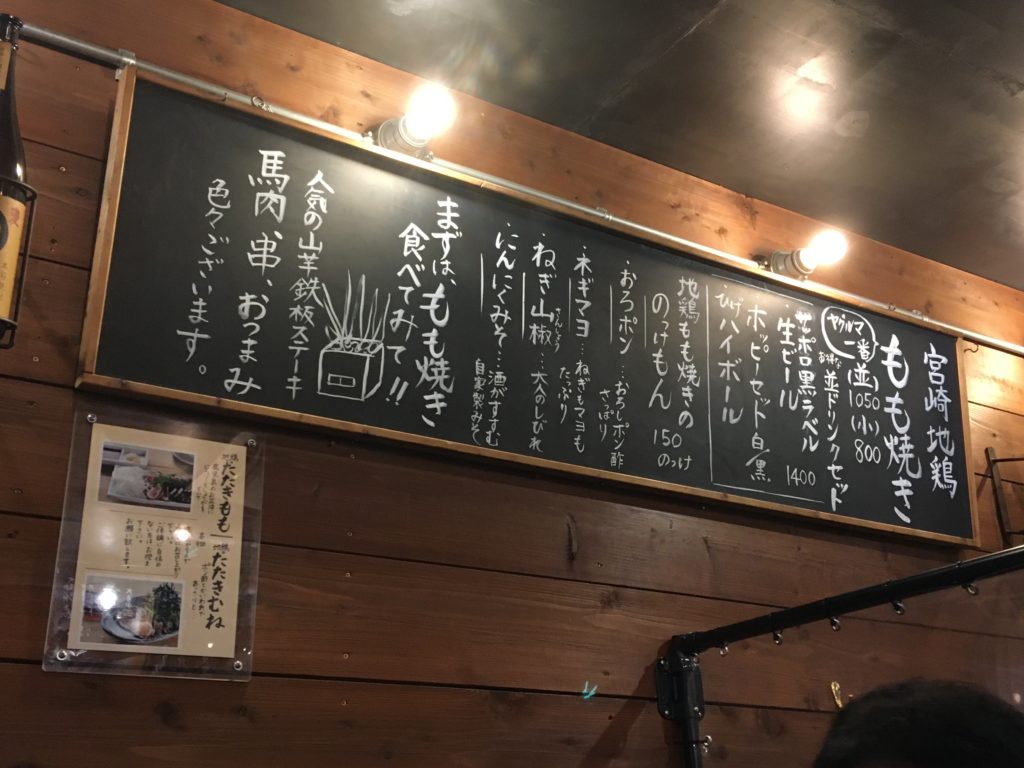 宮崎地鶏
もも焼き
ヤクルマ
一番
(並) 1050 (小) 800
お得な 並ドリンクセット
サッポロ黒ラベル
・生ビール 1400
・ホッピーセット白/黒
・ひげハイボール
地鶏もも焼きの
のっけもん 150 のっけ
・おろポン…おろしポン酢
さっぱり
・ネギマヨ…ねぎもマヨも
たっぷり
・ねぎ山椒…大人のしびれ
・にんにくみそ…酒がすすむ
自家製みそ
まずは、もも焼き
食べてみて!!
人気の山芋鉄板ステーキ
馬肉、串、おつまみ
色々ございます。
地鶏 たたきもも
地鶏 たたきむね